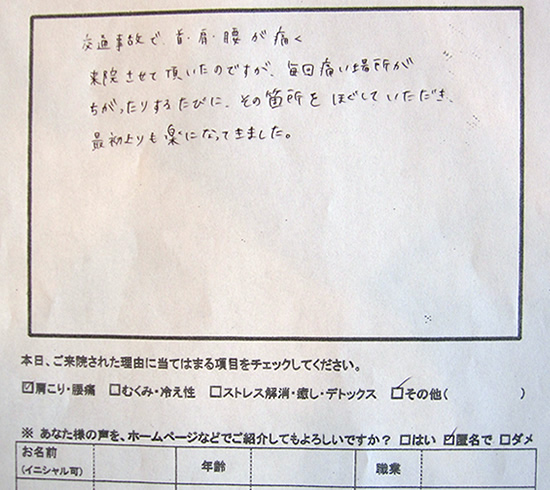 交通事故で、首・肩・腰が痛く
来院させて頂いたのですが、毎回痛い場所が
ちがったりするたびに、その箇所をほぐしていただき、
最初よりも楽になってきました。
本日、ご来院された理由に当てはまる項目をチェックしてください。
☑肩こり・腰痛 □むくみ・冷え性 □ストレス解消・癒し・デトックス ☑その他( )
※ あなた様の声を、ホームページなどでご紹介してもよろしいですか? □はい ☑匿名で □ダメ
お名前 年齢 職業
(イニシャル可)